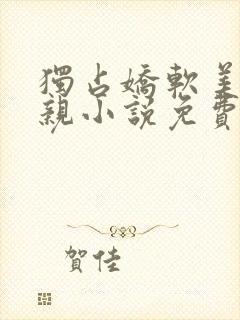 獨占嬌軟美
親小說免費
賀佳